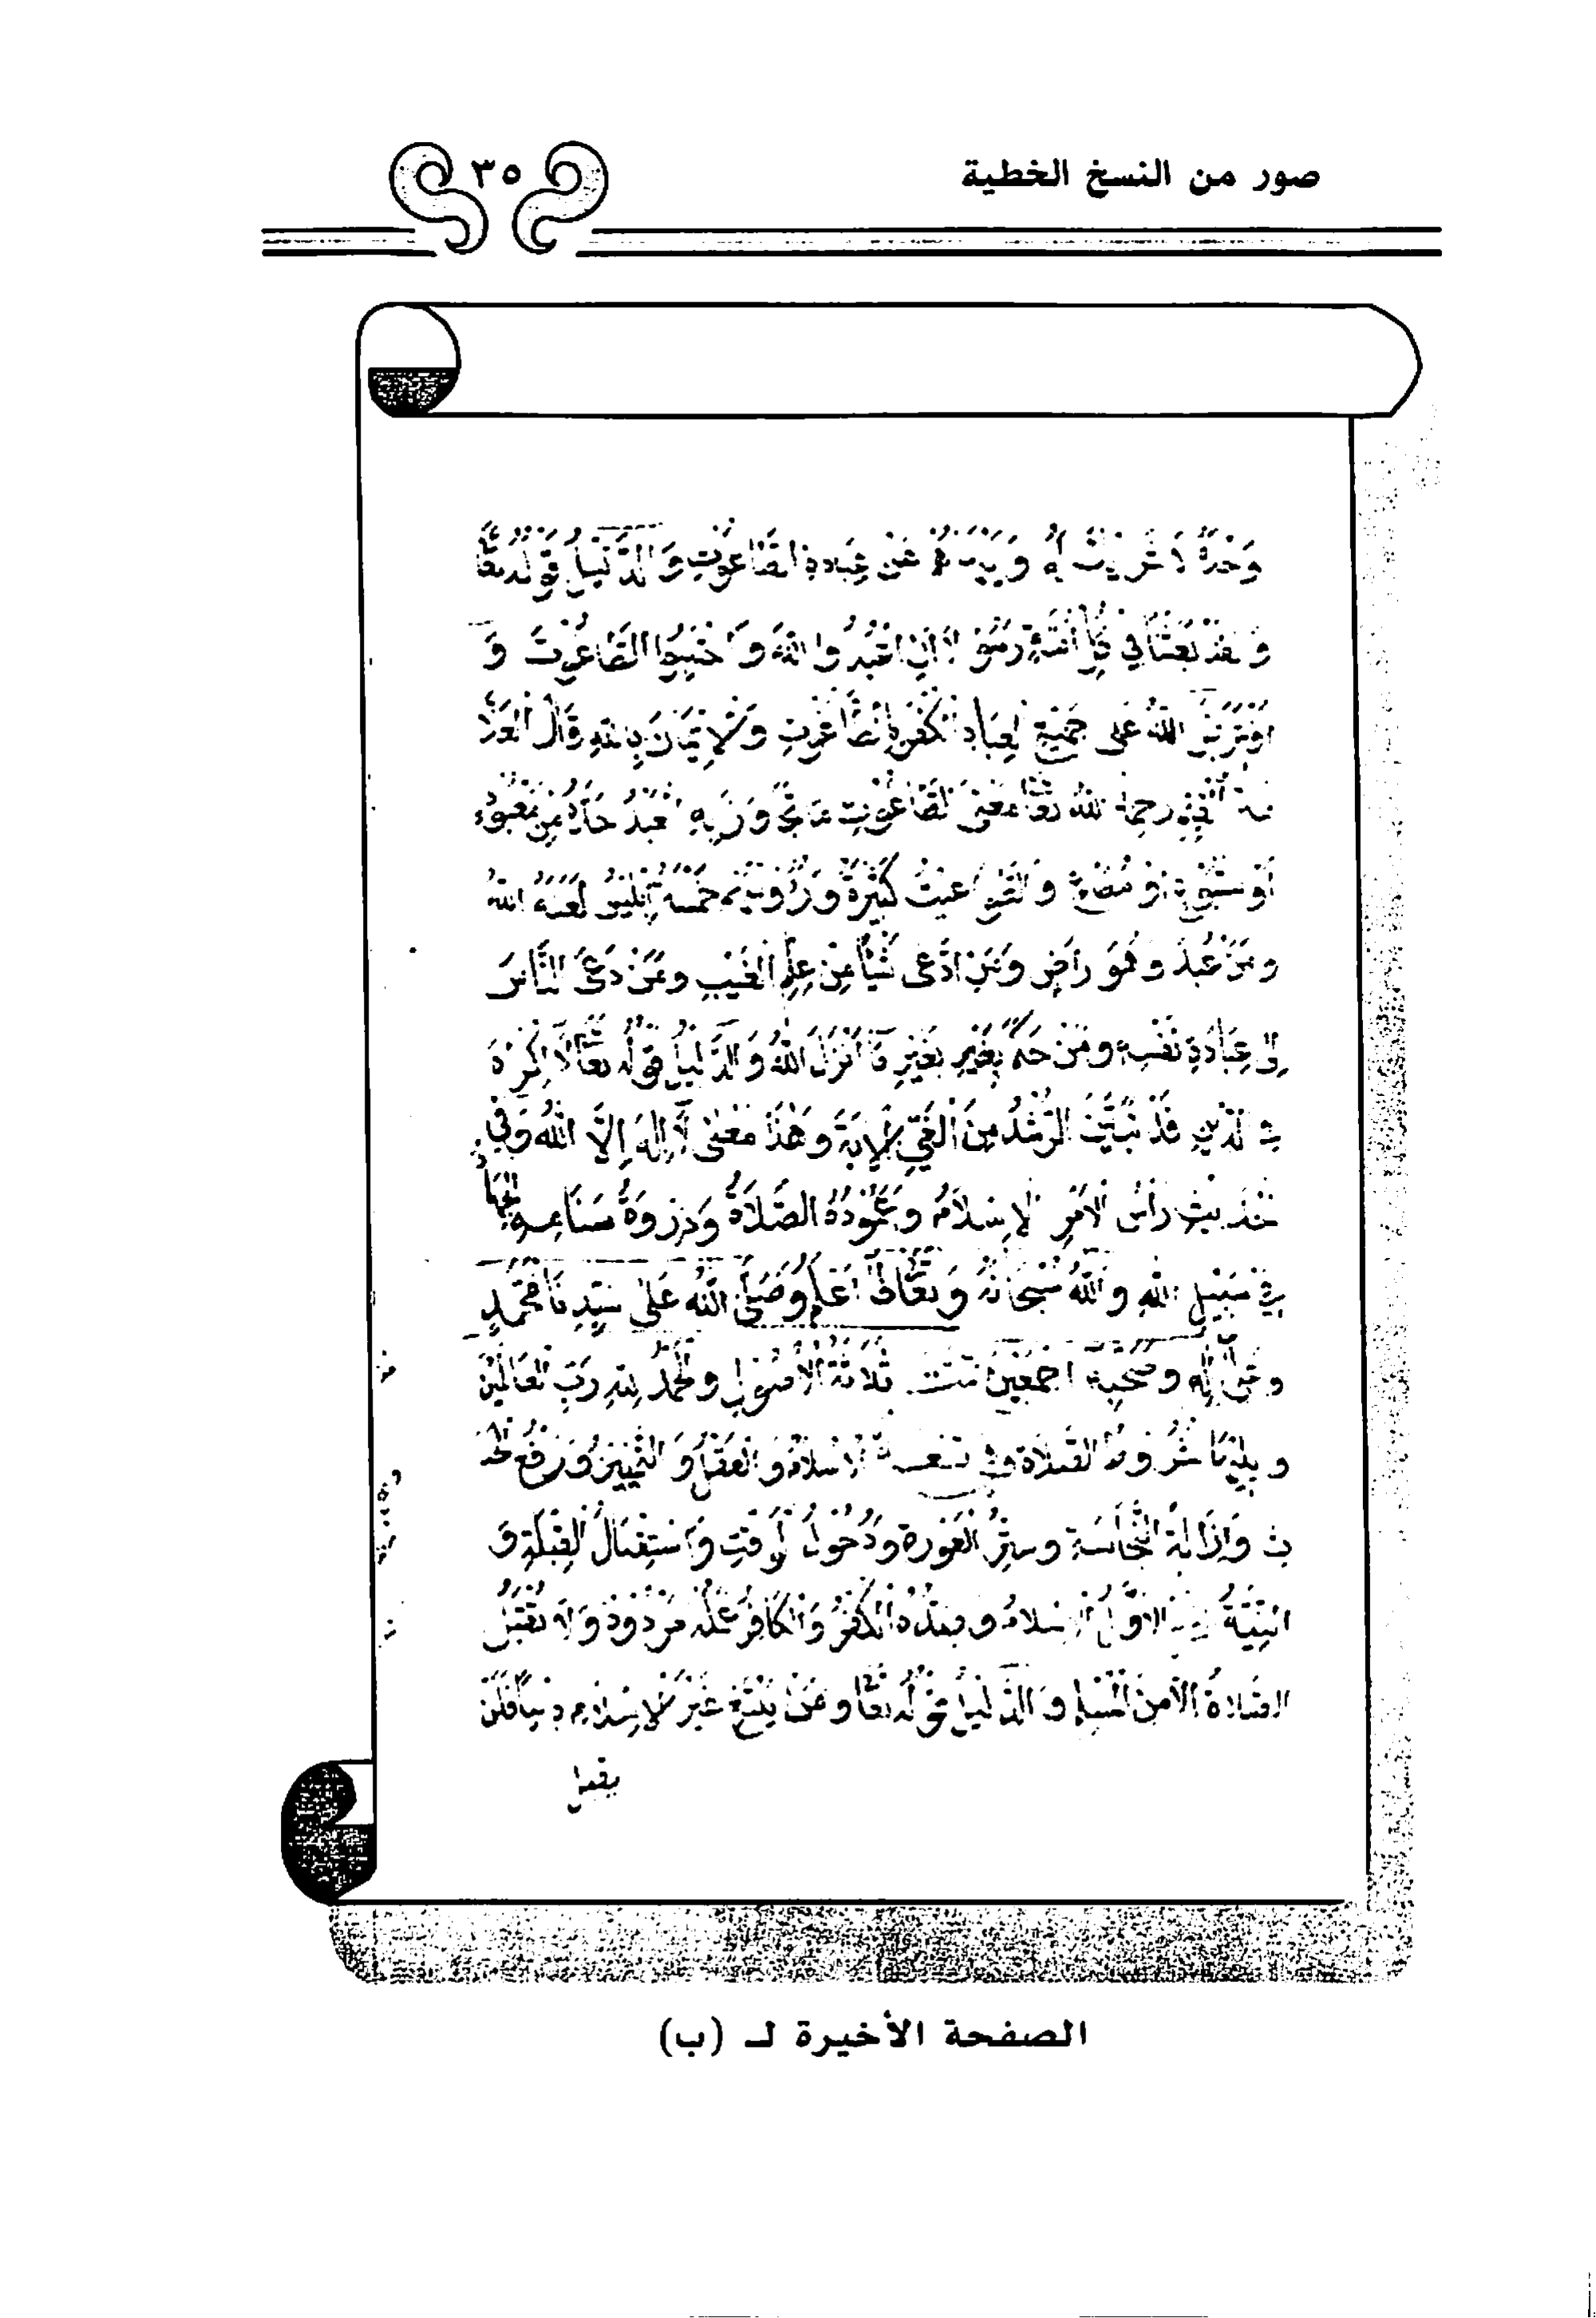 صور من النسخ الخطية
٣٥
وَحْدَهُ لَا شَرِيكَ لَهُ وَيَنْهَاهُمْ عَنْ عِبَادَةِ الطَّاغُوتِ وَالدَّلِيلُ قَوْلُهُ تَعَا
وَلَقَدْ بَعَثْنَا فِي كُلِّ أُمَّةٍ رَسُولًا أَنِ اعْبُدُوا اللَّهَ وَاجْتَنِبُوا الطَّاغُوتَ وَ
افْتَرَضَ اللَّهُ عَلَى جَمِيعِ الْعِبَادِ الْكُفْرَ بِالطَّاغُوتِ وَالْإِيمَانَ بِاللَّهِ قَالَ الْعَلَّا
مة رحمه الله تعا مَعْنَى الطَّاغُوتِ مَا تَجَاوَزَ بِهِ الْعَبْدُ حَدَّهُ مِنْ مَعْبُودٍ
أَوْ مَتْبُوعٍ أَوْ مُطَاعٍ وَالطَّوَاغِيتُ كَثِيرَةٌ وَرُؤُوسُهُمْ خَمْسَةٌ إِبْلِيسُ لَعَنَهُ اللَّهُ
وَمَنْ عُبِدَ وَهُوَ رَاضٍ وَمَنِ ادَّعَى شَيْئًا مِنْ عِلْمِ الْغَيْبِ وَمَنْ دَعَى النَّاسَ
إِلَى عِبَادَةِ نَفْسِهِ وَمَنْ حَكَمَ بِغَيْرِ بِغَيْرِ مَا أَنْزَلَ اللَّهُ وَالدَّلِيلُ قَوْلُهُ تَعَا لَا إِكْرَاهَ
فِي الدِّينِ قَدْ تَبَيَّنَ الرُّشْدُ مِنَ الْغَيِّ الْآيَةَ وَهَذَا مَعْنَى لَا إِلَهَ إِلَّا اللَّهُ وَفِي
الْحَدِيثِ رَأْسُ الْأَمْرِ الْإِسْلَامُ وَعَمُودُهُ الصَّلَاةُ وَذِرْوَةُ سَنَامِهِ الْجِهَادُ
فِي سَبِيلِ اللَّهِ وَاللَّهُ سُبْحَانَهُ وَتَعَالَى أَعْلَمُ وَصَلَّى اللَّهُ عَلَى سَيِّدِنَا مُحَمَّدٍ
وَعَلَى آلِهِ وَصَحْبِهِ أَجْمَعِينَ تَمَّتْ ثَلَاثَةُ الْأُصُولِ وَالْحَمْدُ لِلَّهِ رَبِّ الْعَالَمِينَ
وَيَلِيهَا شُرُوطُ الصَّلَاةِ تِسْعَةٌ الْإِسْلَامُ وَالْعَقْلُ وَالتَّمْيِيزُ وَرَفْعُ الْحَدَ
ثِ وَإِزَالَةُ النَّجَاسَةِ وَسَتْرُ الْعَوْرَةِ وَدُخُولُ الْوَقْتِ وَاسْتِقْبَالُ الْقِبْلَةِ وَ
النِّيَّةُ الْأَوَّلُ الْإِسْلَامُ وَضِدُّهُ الْكُفْرُ وَالْكَافِرُ عَمَلُهُ مَرْدُودٌ وَلَا تُقْبَلُ
الصَّلَاةُ إِلَّا مِنَ الْمُسْلِمِ وَالدَّلِيلُ قَوْلُهُ تَعَا وَمَنْ يَبْتَغِ غَيْرَ الْإِسْلَامِ دِينًا فَلَنْ
يقبل
الصفحة الأخيرة لـ (ب)